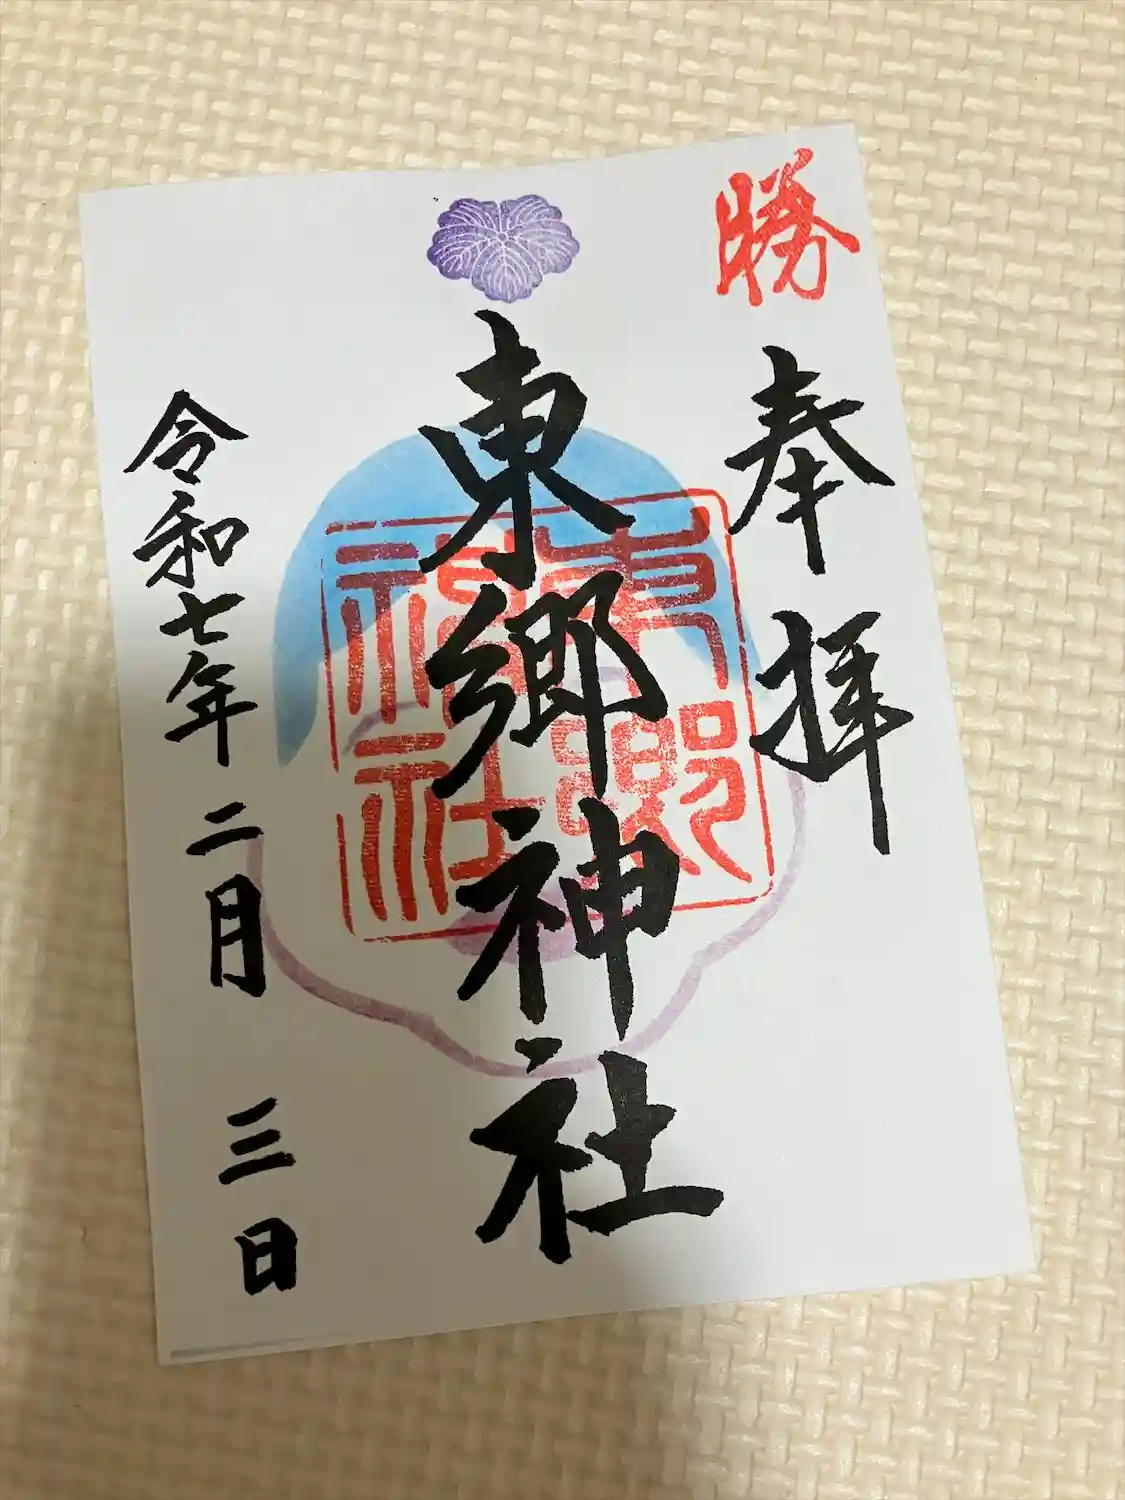 勝
奉拝
東郷神社
東郷神社
令和七年二月三日